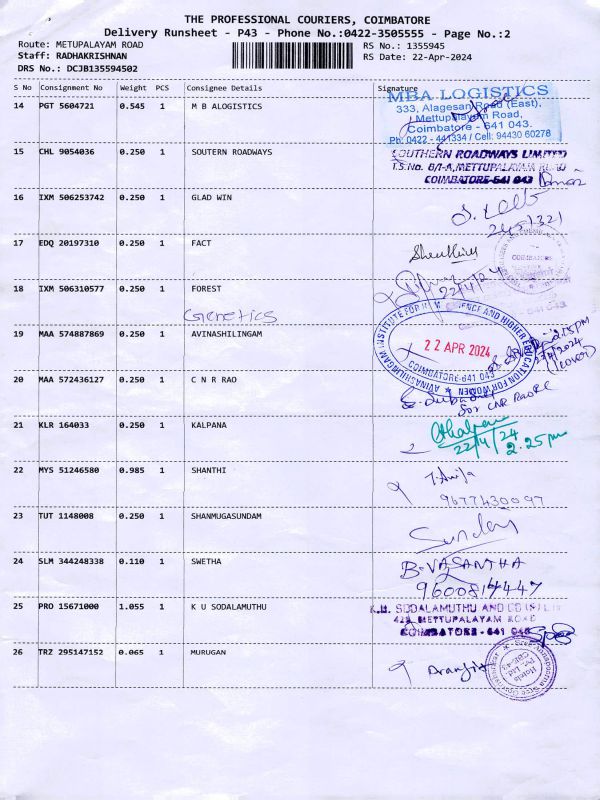 THE PROFESSIONAL COURIERS, COIMBATORE
Delivery Runsheet - P43 - Phone No.:0422-3505555 - Page No.:2
Route: METUPALAYAM ROAD
RS No.: 1355945
Staff: RADHAKRISHNAN
RS Date: 22-Apr-2024
DRS No.: DCJB135594502
S No Consignment No Weight PCS Consignee Details Signature
14 PGT 5604721 0.545 1 M B ALOGISTICS
MBA LOGISTICS
333, Alagesan Road (East),
Mettupalayam Road,
Coimbatore - 641 043.
Ph: 0422 - 441334 / Cell: 94430 60278
15 CHL 9054036 0.250 1 SOUTERN ROADWAYS
SOUTHERN ROADWAYS LIMITED
T.S.No. 8/1-A, METTUPALAYAM ROAD
COIMBATORE-641 043
16 IXM 506253742 0.250 1 GLAD WIN
17 EDQ 20197310 0.250 1 FACT
COIMBATORE
18 IXM 506310577 0.250 1 FOREST
22/4/24
Genetics
19 MAA 574887869 0.250 1 AVINASHILINGAM
AVINASHILINGAM INSTITUTE FOR HOME SCIENCE AND HIGHER EDUCATION FOR WOMEN
22 APR 2024
COIMBATORE-641 043
20 MAA 572436127 0.250 1 C N R RAO
for CNR Rao
21 KLR 164033 0.250 1 KALPANA
Kalpana
22/4/24
2.25pm
22 MYS 51246580 0.985 1 SHANTHI
9677430097
23 TUT 1148008 0.250 1 SHANMUGASUNDAM
Sundar
24 SLM 344248338 0.110 1 SWETHA
B.VASANTHA
9600814447
25 PRO 15671000 1.055 1 K U SODALAMUTHU
K.U. SODALAMUTHU AND CO
METTUPALAYAM ROAD
COIMBATORE - 641 043
26 TRZ 295147152 0.065 1 MURUGAN